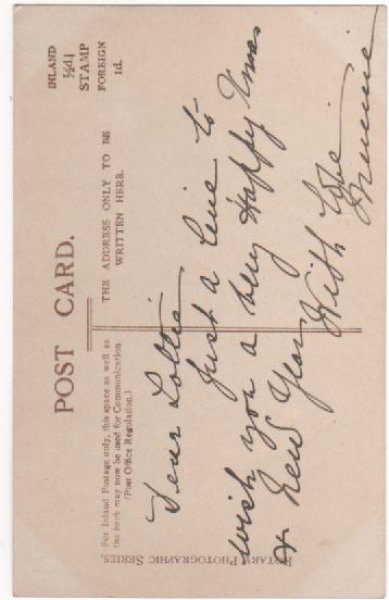 POST CARD.
For Inland Postage only, this space as well as
the back may now be used for Communication.
(Post Office Regulation.)
THE ADDRESS ONLY TO BE
WRITTEN HERE.
INLAND
½d.
STAMP
FOREIGN
1d.
Dear Lottie
Just a line to
wish you a very Happy Xmas
& New Year With Love
ROTARY PHOTOGRAPHIC SERIES.